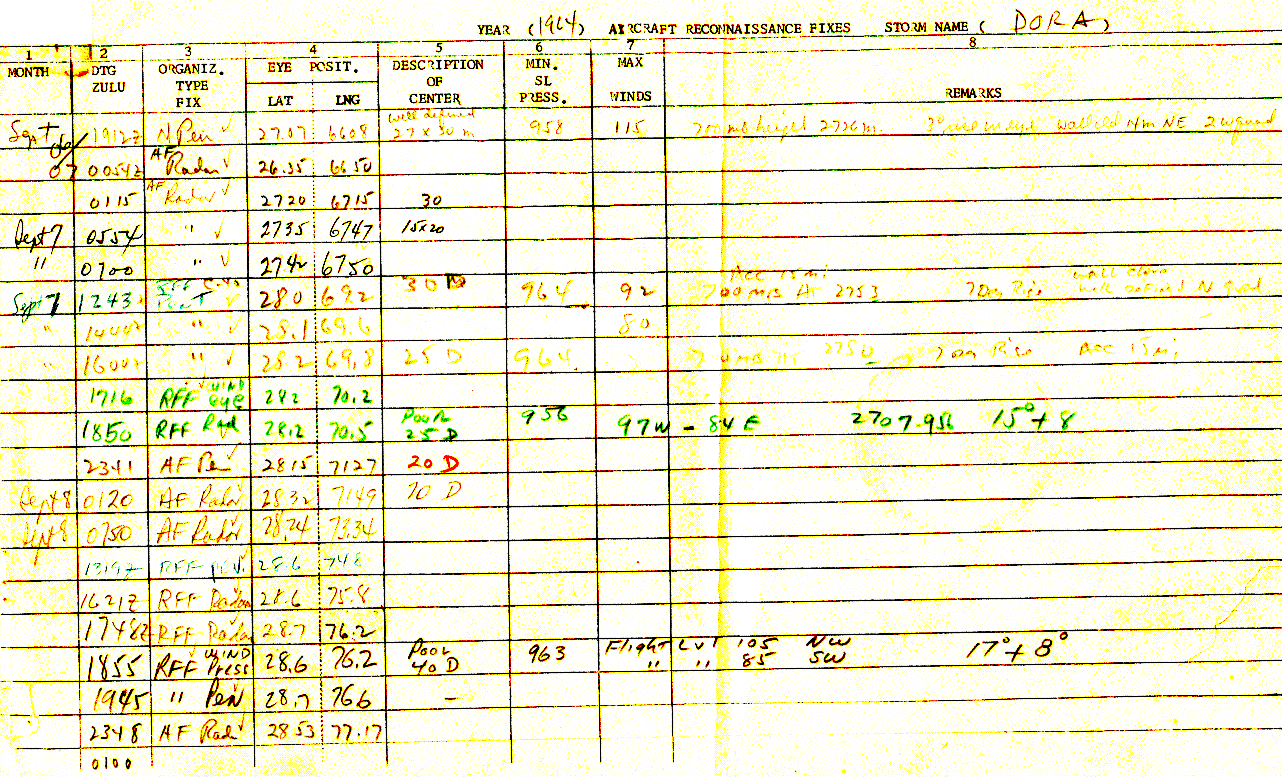 YEAR (1964) AIRCRAFT RECONNAISSANCE FIXES STORM NAME ( DORA )
1 2 3 4 5 6 7 8
MONTH DTG ZULU ORGANIZ. TYPE FIX EYE POSIT. LAT LNG DESCRIPTION OF CENTER MIN. SL PRESS. MAX WINDS REMARKS
Sept 06 1912Z N Pen ✓ 27.07 6608 well defined 27 x 30 m 958 115 700 mb height 2726 m.
07 0054Z AF Radar ✓ 26.55 6650
0115 AF Radar ✓ 2720 6715 30
Sept 7 0554 " ✓ 2735 6747 15x20
" 0700 " ✓ 2742 6750
Sept 7 1243 ✓ 28.0 69.2 30 D 964 92 ACC 15 mi. 700 mbs Ht 2753 wall cloud well defined N quad
" 1444Z " ✓ 28.1 69.6 80
" 1600Z " ✓ 28.2 69.8 25 D 964 2750 Acc 15 mi
1716 RFF ✓ WIND eye 282 70.2
1850 RFF Rad 28.2 70.5 Poor 25 D 956 97W - 84 E 2707.956 15° + 8
2341 AF Pen ✓ 2815 7127 20 D
Sept 8 0120 AF Radar 28.32 7149 20 D
Sept 8 0750 AF Radar 28.24 73.34
1319Z RFF pen. 28.6 748
1621Z RFF Radar 28.6 75.8
1748Z RFF Radar 28.7 76.2
1855 RFF ✓ WIND Press 28.6 76.2 Poor 40 D 963 Flight Lvl 105 NW 17° + 8°
" " 85 SW
1945 " Pen ✓ 28.7 76.6 —
2348 AF Rad ✓ 28 53 77.17
0100